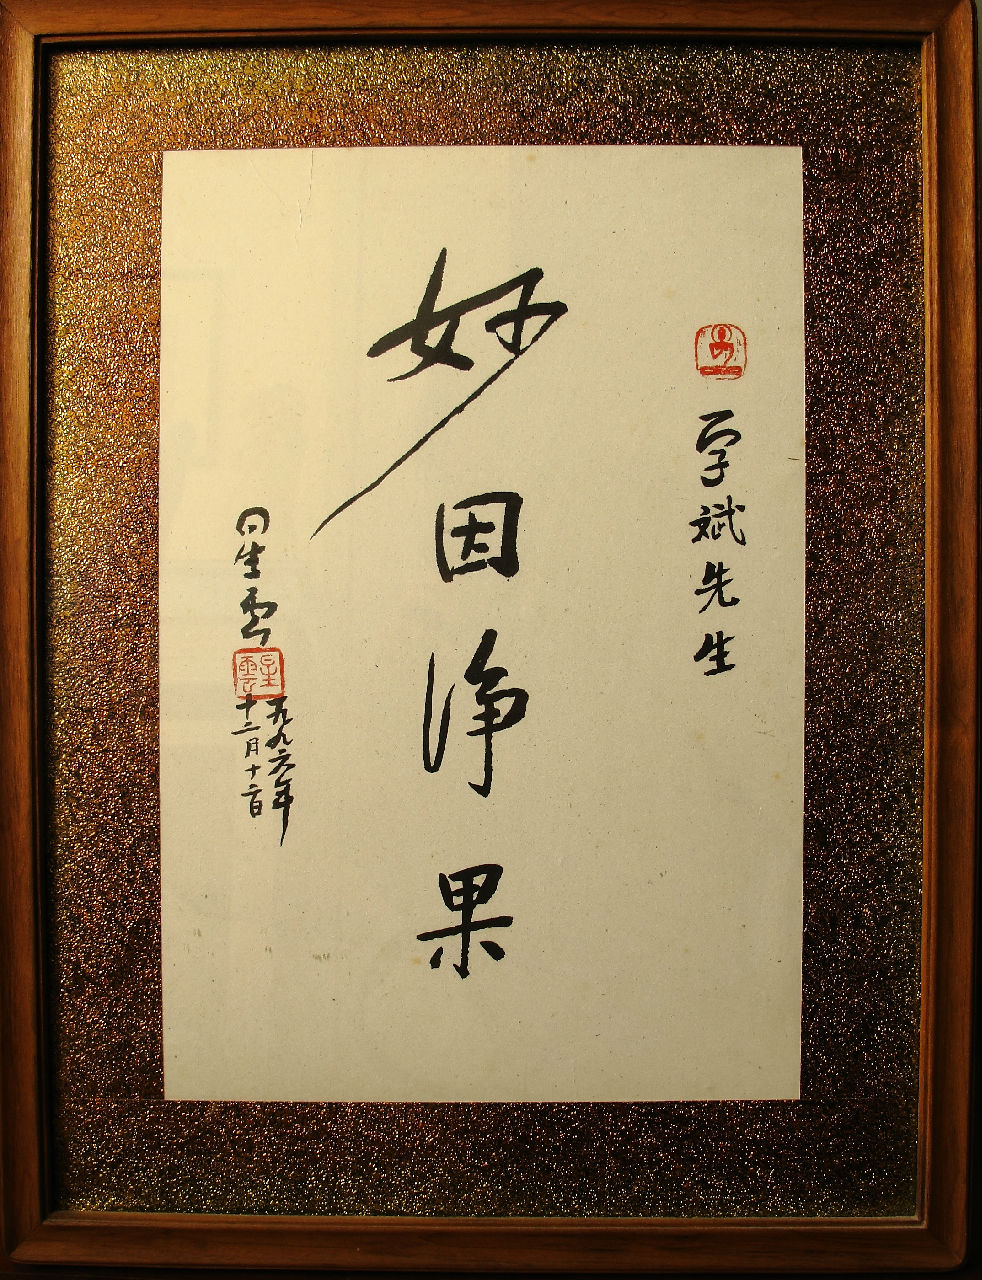 斌先生
妙因净果
星雲
星雲
一九九六年
十二月十二日